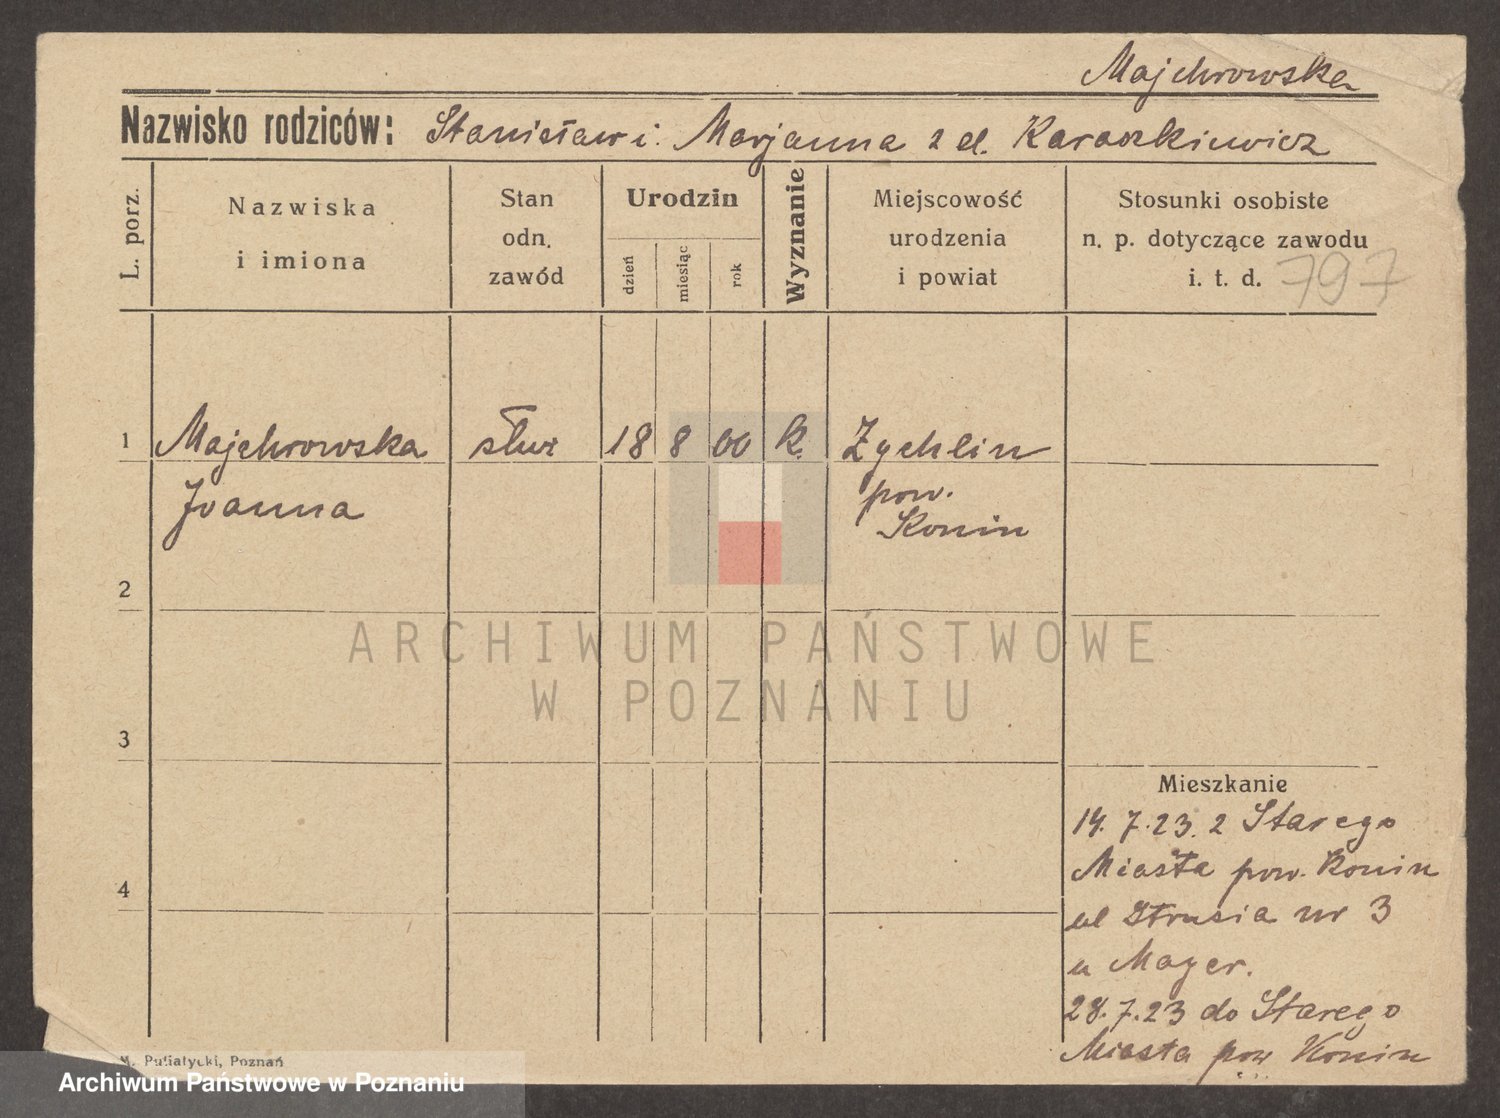 Majchrowska
Nazwisko rodziców: Stanisław i. Marjanna z d. Karaszkiewicz
L. porz.
Nazwiska
i imiona
Stan
odn.
zawód
Urodzin
dzień
miesiąc
rok
Wyznanie
Miejscowość
urodzenia
i powiat
Stosunki osobiste
n. p. dotyczące zawodu
i. t. d.
797
1 Majchrowska służ 18 8 00 k. Zychlin
Joanna
pow.
Konin
2
ARCHIWUM PAŃSTWOWE
W POZNANIU
3
Mieszkanie
14. 7. 23. z Starego
Miasta pow. Konin
4
ul Strusia nr 3
u Mayer.
28. 7. 23 do Starego
Miasta pow Konin
M. Putiatycki, Poznań
Archiwum Państwowe w Poznaniu